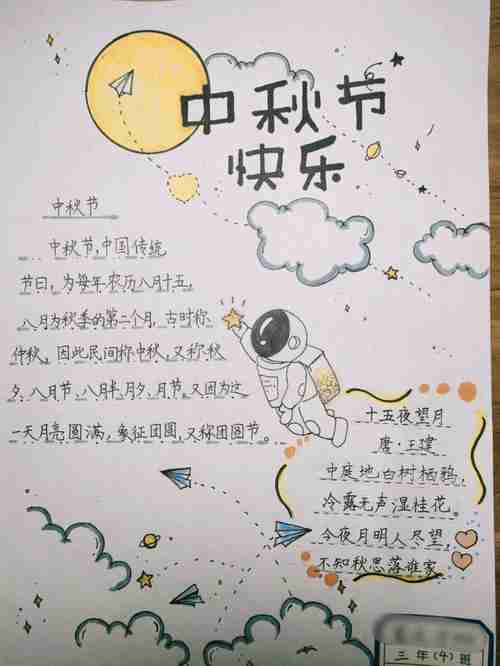 中秋节
快乐
中秋节
中秋节，中国传统
节日，为每年农历八月十五，
八月为秋季的第二个月，古时称
仲秋。因此民间称中秋，又称秋
夕、八月节、八月半、月夕、月节。又因为这
一天月亮圆满，象征团圆，又称团圆节。
十五夜望月
唐·王建
中庭地白树栖鸦，
冷露无声湿桂花。
今夜月明人尽望，
不知秋思落谁家
三年(4)班